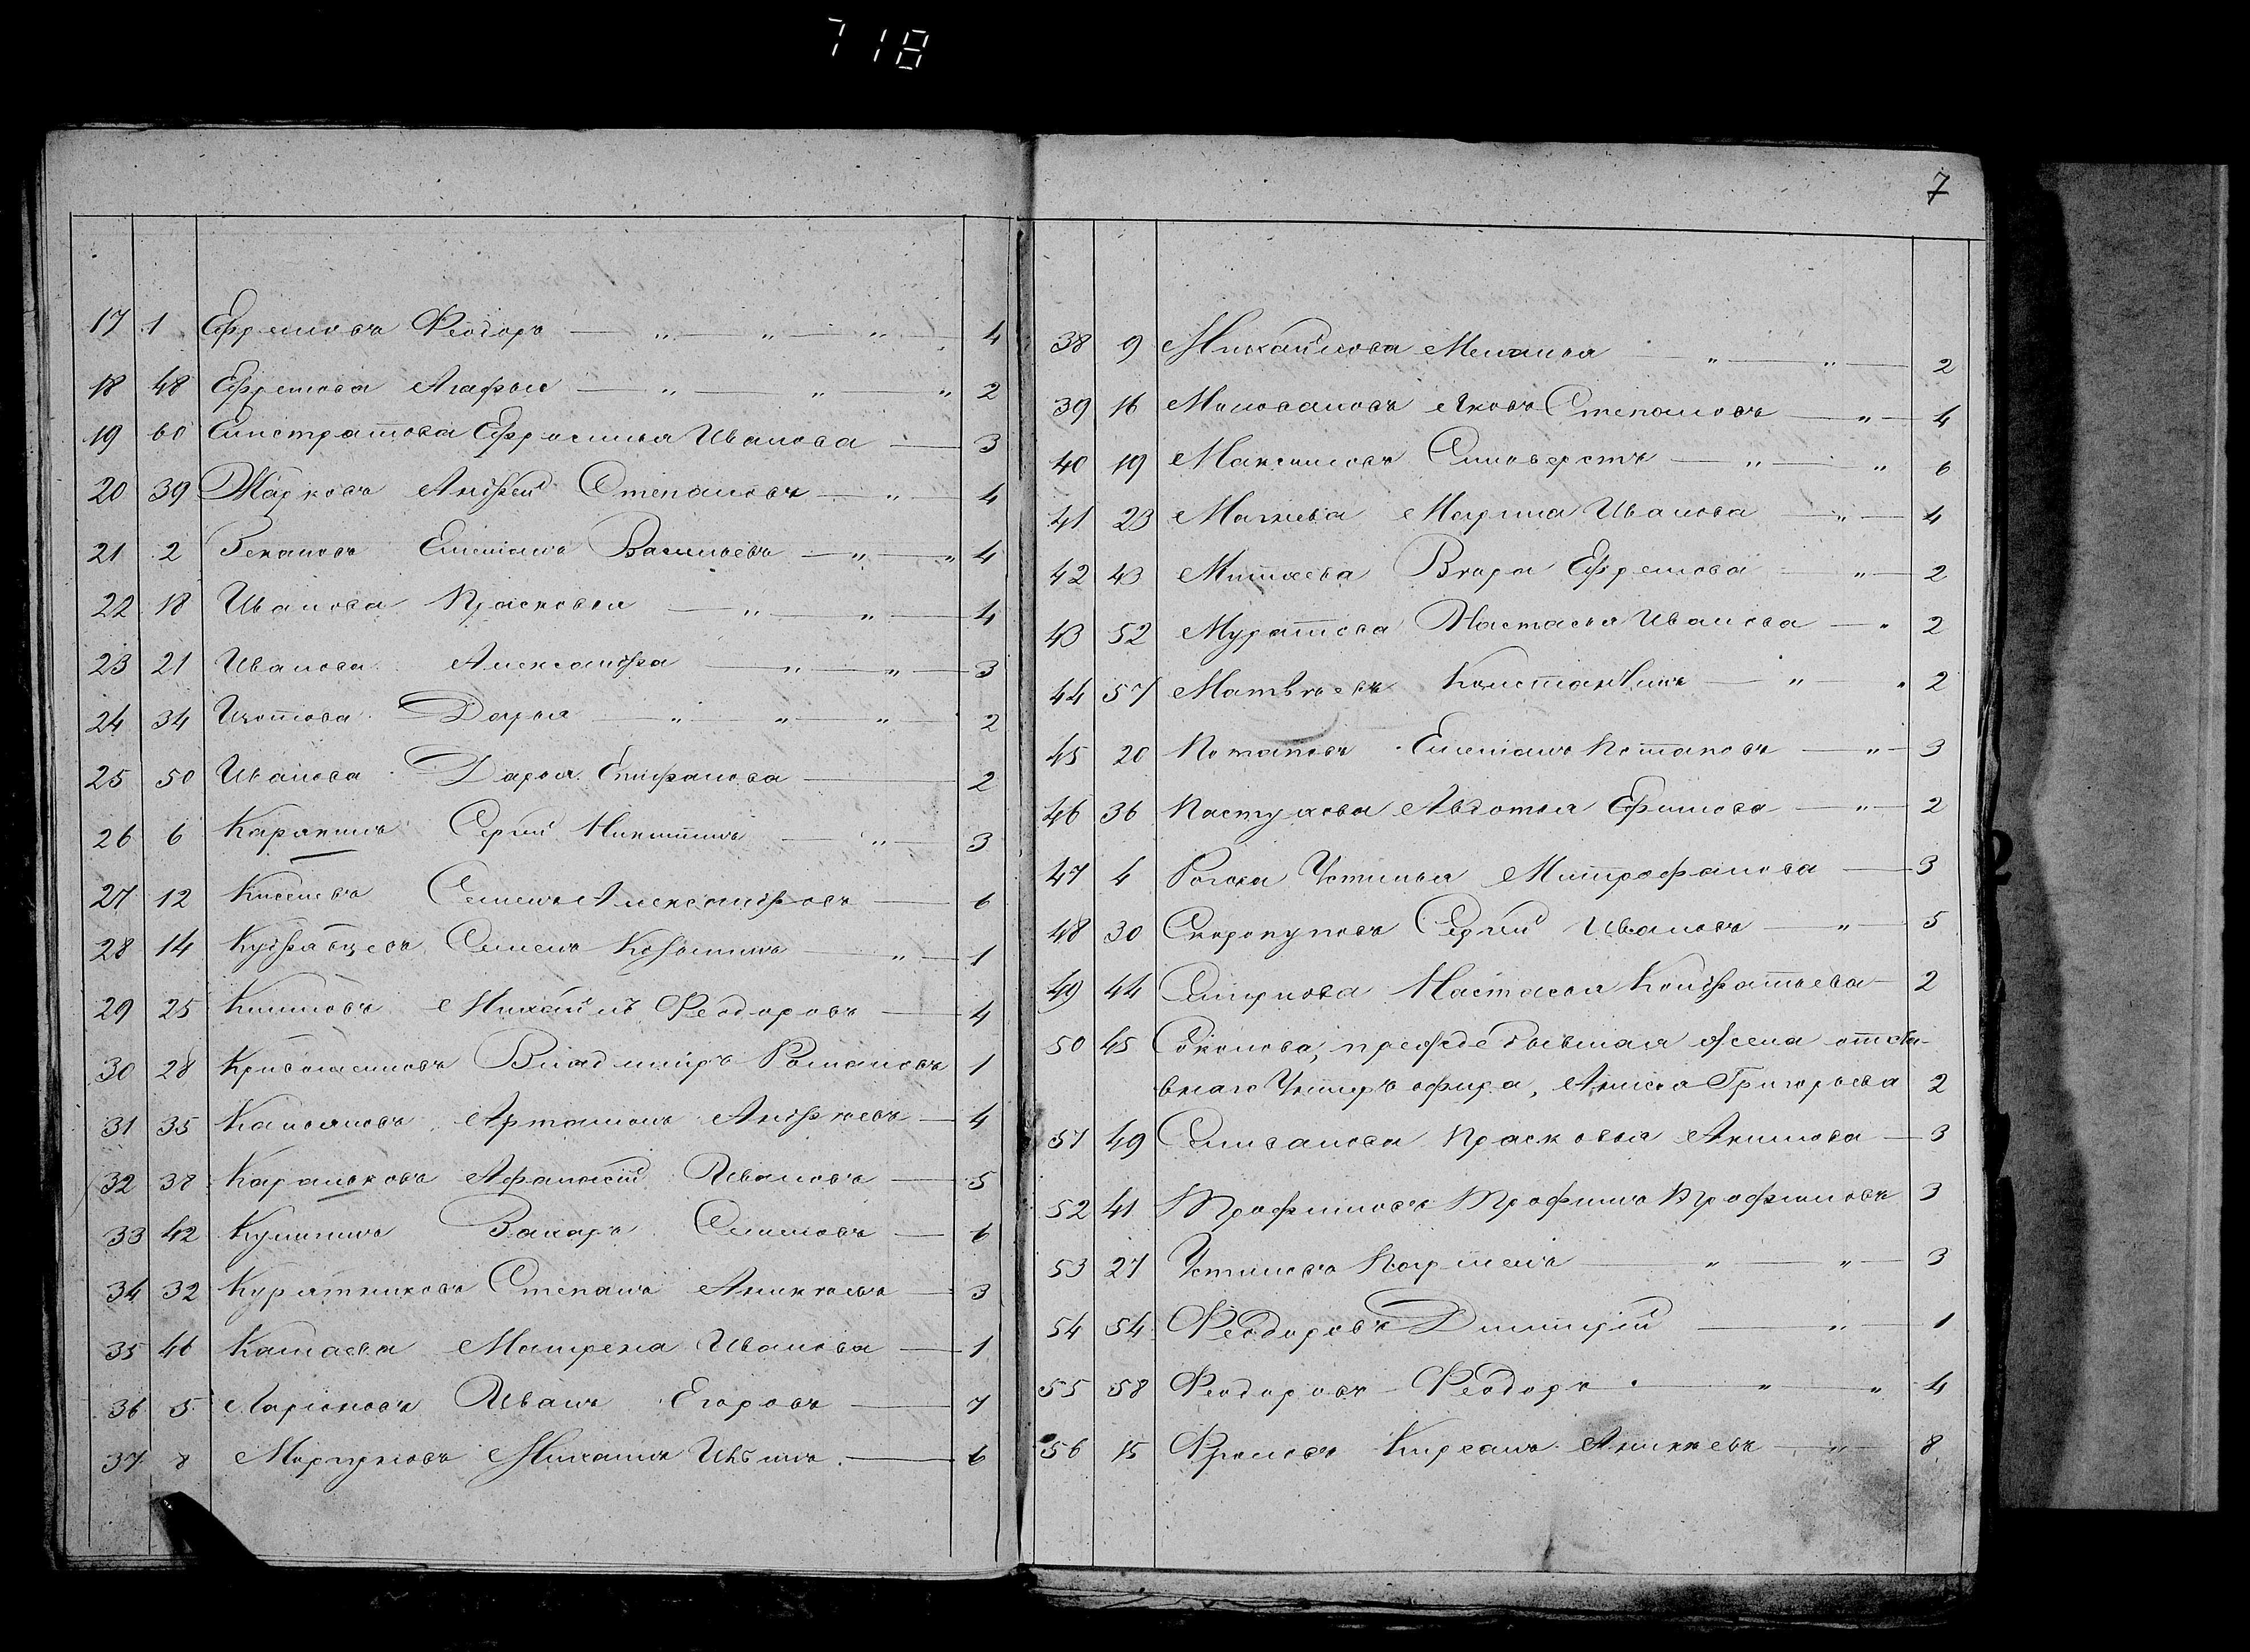 718
17 1 Ефремовъ Ѳеодоръ — „ — „ — „ — 4
18 48 Ефремова Агафья — „ — „ — „ 2
19 60 Елистратова Ефросинья Иванова — 3
20 39 Жарковъ Андрей Степановъ — „ — 4
21 2 Зекановъ Емельянъ Васильевъ — „ — „ 4
22 18 Иванова Прасковья — „ — „ — 4
23 21 Иванова Александра — „ — „ — 3
24 34 Изотова Дарья — „ — „ — „ — 2
25 50 Иванова Дарья Епифанова — 2
26 6 Карякинъ Сергий Никитинъ — „ — 3
27 12 Киселевъ Семенъ Александровъ — 6
28 14 Кудрявцевъ Семенъ Козьминъ — „ — 1
29 25 Климовъ Михаилъ Ѳеодоровъ — 4
30 28 Владиміръ Романовъ 1
31 35 Касьяновъ Артамонъ Андреевъ — 4
32 38 Каральковъ Афанасій Ивановъ — 5
33 42 Захаръ — 6
34 32 Курятниковъ Степанъ Аникѣевъ — 3
35 46 Катаева Матрена Иванова — 1
36 5 Ларіоновъ Иванъ Егоровъ — 7
37 8 Михаилъ Ильинъ — 6
7
38 9 Михайлова Меланья — „ — „ — 2
39 16 Яковъ Степановъ — „ — 4
40 19 Максимовъ Силоверстъ — „ — „ 6
41 23 Марина Иванова — „ — 4
42 43 Митяева Вѣра Ефремова — „ — 2
43 52 Муратова Настасья Иванова — „ 2
44 57 Матвѣевъ Константинъ — „ — „ 2
45 20 Потаповъ Емельянъ Потаповъ — „ — 3
46 36 Пастухова Авдотья Ефимова — „ — 2
47 4 Устинья Митрофанова — 3
48 30 Скорокуповъ Сергий Ивановъ — „ — 5
49 44 Смирнова Настасья Кондратьева — 2
50 45 Соколова, прежде бывшая жена отста-
внаго Унтеръ офира, Анисья Григорьева 2
51 49 Селиванова Прасковья Акимова — 3
52 41 Трофимовъ Трофимъ Трофимовъ 3
53 27 Устиновъ Парменъ — „ — „ — 3
54 54 Ѳеодоровъ Димитрій — „ — 1
55 58 Ѳеодоровъ Ѳеодоръ — „ — „ 4
56 15 Фроловъ Кирсанъ Аникѣевъ — „ — 8